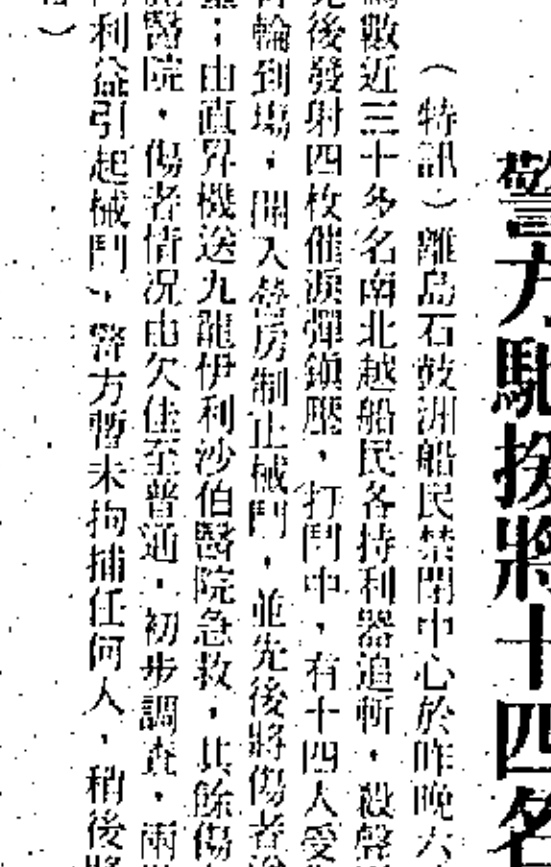 警方馳援將十四名
（特訊）離島石鼓洲船民禁閉中心於昨晚六
數近三十多名南北越船民各持利器追斬，殺聲
後發射四枚催淚彈鎮壓，打鬥中，有十四人受
輪到場，開入營房制止械鬥，並先後將傷者
；由直昇機送九龍伊利沙伯醫院急救，其餘傷
醫院，傷者情況由欠佳至普通，初步調查，兩
利益引起械鬥，警方暫未拘捕任何人，稍後將
）